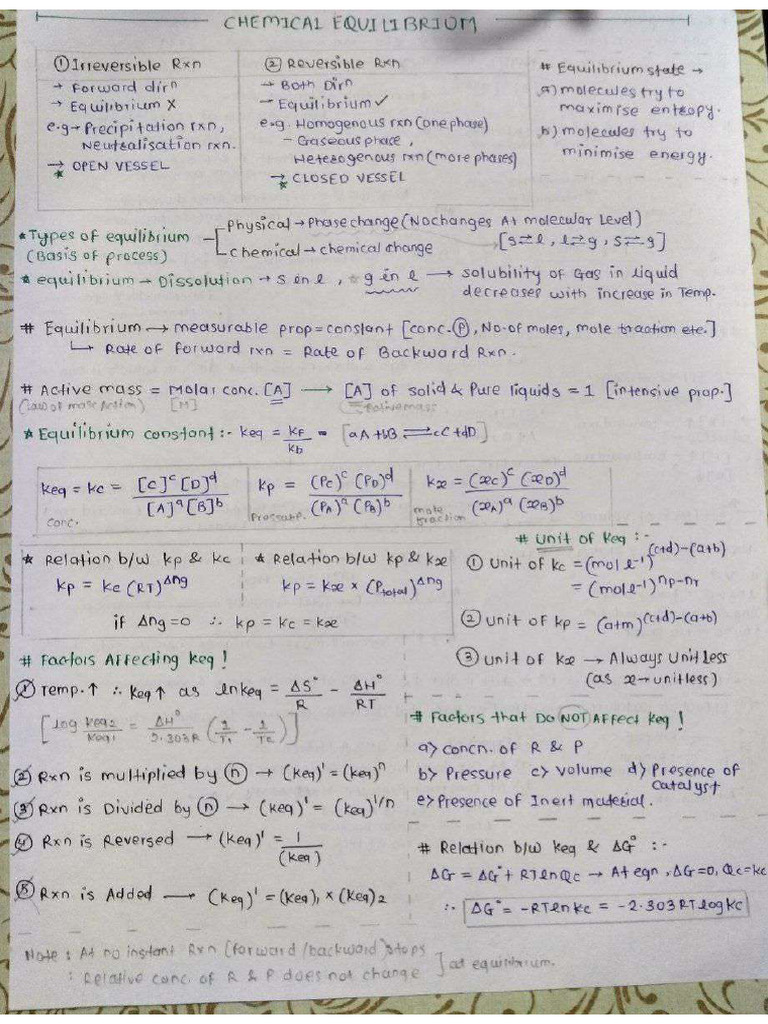 CHEMICAL EQUILIBRIUM
① Irreversible Rxn
→ Forward dirⁿ
→ Equilibrium X
e.g → Precipitation rxn,
Neutralisation rxn.
→ OPEN VESSEL
② Reversible Rxn
→ Both Dirⁿ
→ Equilibrium ✓
e.g. Homogenous rxn (one phase)
- Gaseous phase,
Heterogenous rxn (more phases)
→ CLOSED VESSEL
# Equilibrium state →
a) molecules try to
maximise entropy.
b) molecules try to
minimise energy.
* Types of equilibrium
(Basis of process)
Physical → Phase change (No changes At molecular Level)
Chemical → chemical change [s⇌l, l⇌g, s⇌g]
* equilibrium → Dissolution → s in l, * g in l → solubility of Gas in liquid
decreases with increase in Temp.
# Equilibrium → measurable prop = constant [conc. Ⓟ, No. of moles, mole fraction etc.]
↳ Rate of forward rxn = Rate of Backward Rxn.
# Active mass = Molar conc. [A] → [A] of solid & Pure liquids = 1 [intensive prop.]
(Law of mass Action) [M] Active mass
* Equilibrium constant :- Keq = KF/Kb = [aA + bB ⇌ cC + dD]
Keq = Kc = [C]ᶜ [D]ᵈ / [A]ᵃ [B]ᵇ
conc.
Kp = (PC)ᶜ (PD)ᵈ / (PA)ᵃ (PB)ᵇ
Kx = (xC)ᶜ (xD)ᵈ / (xA)ᵃ (xB)ᵇ
mole
fraction
* Relation b/w Kp & Kc
Kp = Kc (RT)^Δng
* Relation b/w Kp & Kx
Kp = Kx × (Ptotal)^Δng
if Δng = 0 ∴ Kp = Kc = Kx
# Unit of Keq :-
① Unit of Kc = (mol l⁻¹)^(c+d)-(a+b)
= (mol l⁻¹)^np-nr
② unit of Kp = (atm)^(c+d)-(a+b)
③ unit of Kx → Always Unitless
(as x → unitless)
# Factors Affecting Keq!
① Temp. ↑ ∴ Keq ↑ as ln Keq = ΔS°/R - ΔH°/RT
[log Keq2/Keq1 = ΔH°/2.303R (1/T1 - 1/T2)]
② Rxn is multiplied by ⓝ → (Keq)' = (Keq)ⁿ
③ Rxn is Divided by ⓝ → (Keq)' = (Keq)^1/n
④ Rxn is Reversed → (Keq)' = 1/(Keq)
⑤ Rxn is Added → (Keq)' = (Keq)₁ × (Keq)₂
# Factors that Do NOT Affect Keq!
a) concn. of R & P
b) Pressure c) volume d) Presence of
Catalyst
e) Presence of Inert material.
# Relation b/w Keq & ΔG° :-
ΔG = ΔG° + RT ln Qc → At eqn, ΔG=0, Qc=Kc
∴ ΔG° = -RT ln Kc = -2.303 RT log Kc
Note : At no instant Rxn (forward/backward) stops
: Relative conc. of R & P does not change ] at equilibrium.